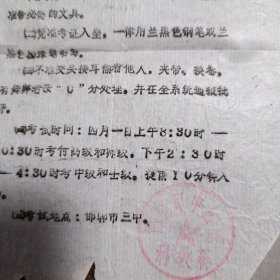 准备必备的文具。
㈡凭准考证入坐，一律用兰黑色钢笔或兰
黑色
㈢不准交头接耳偷看他人，夹带、换卷。
"0"分处理，并在全系统通报批
评。
㈣考试时间：四月一日上午8:30时—
0:30时考付高级和师级，下午2:30时
—4:30时考中级和士级，提前10分钟入
㈤考试地点：邯郸市三中。